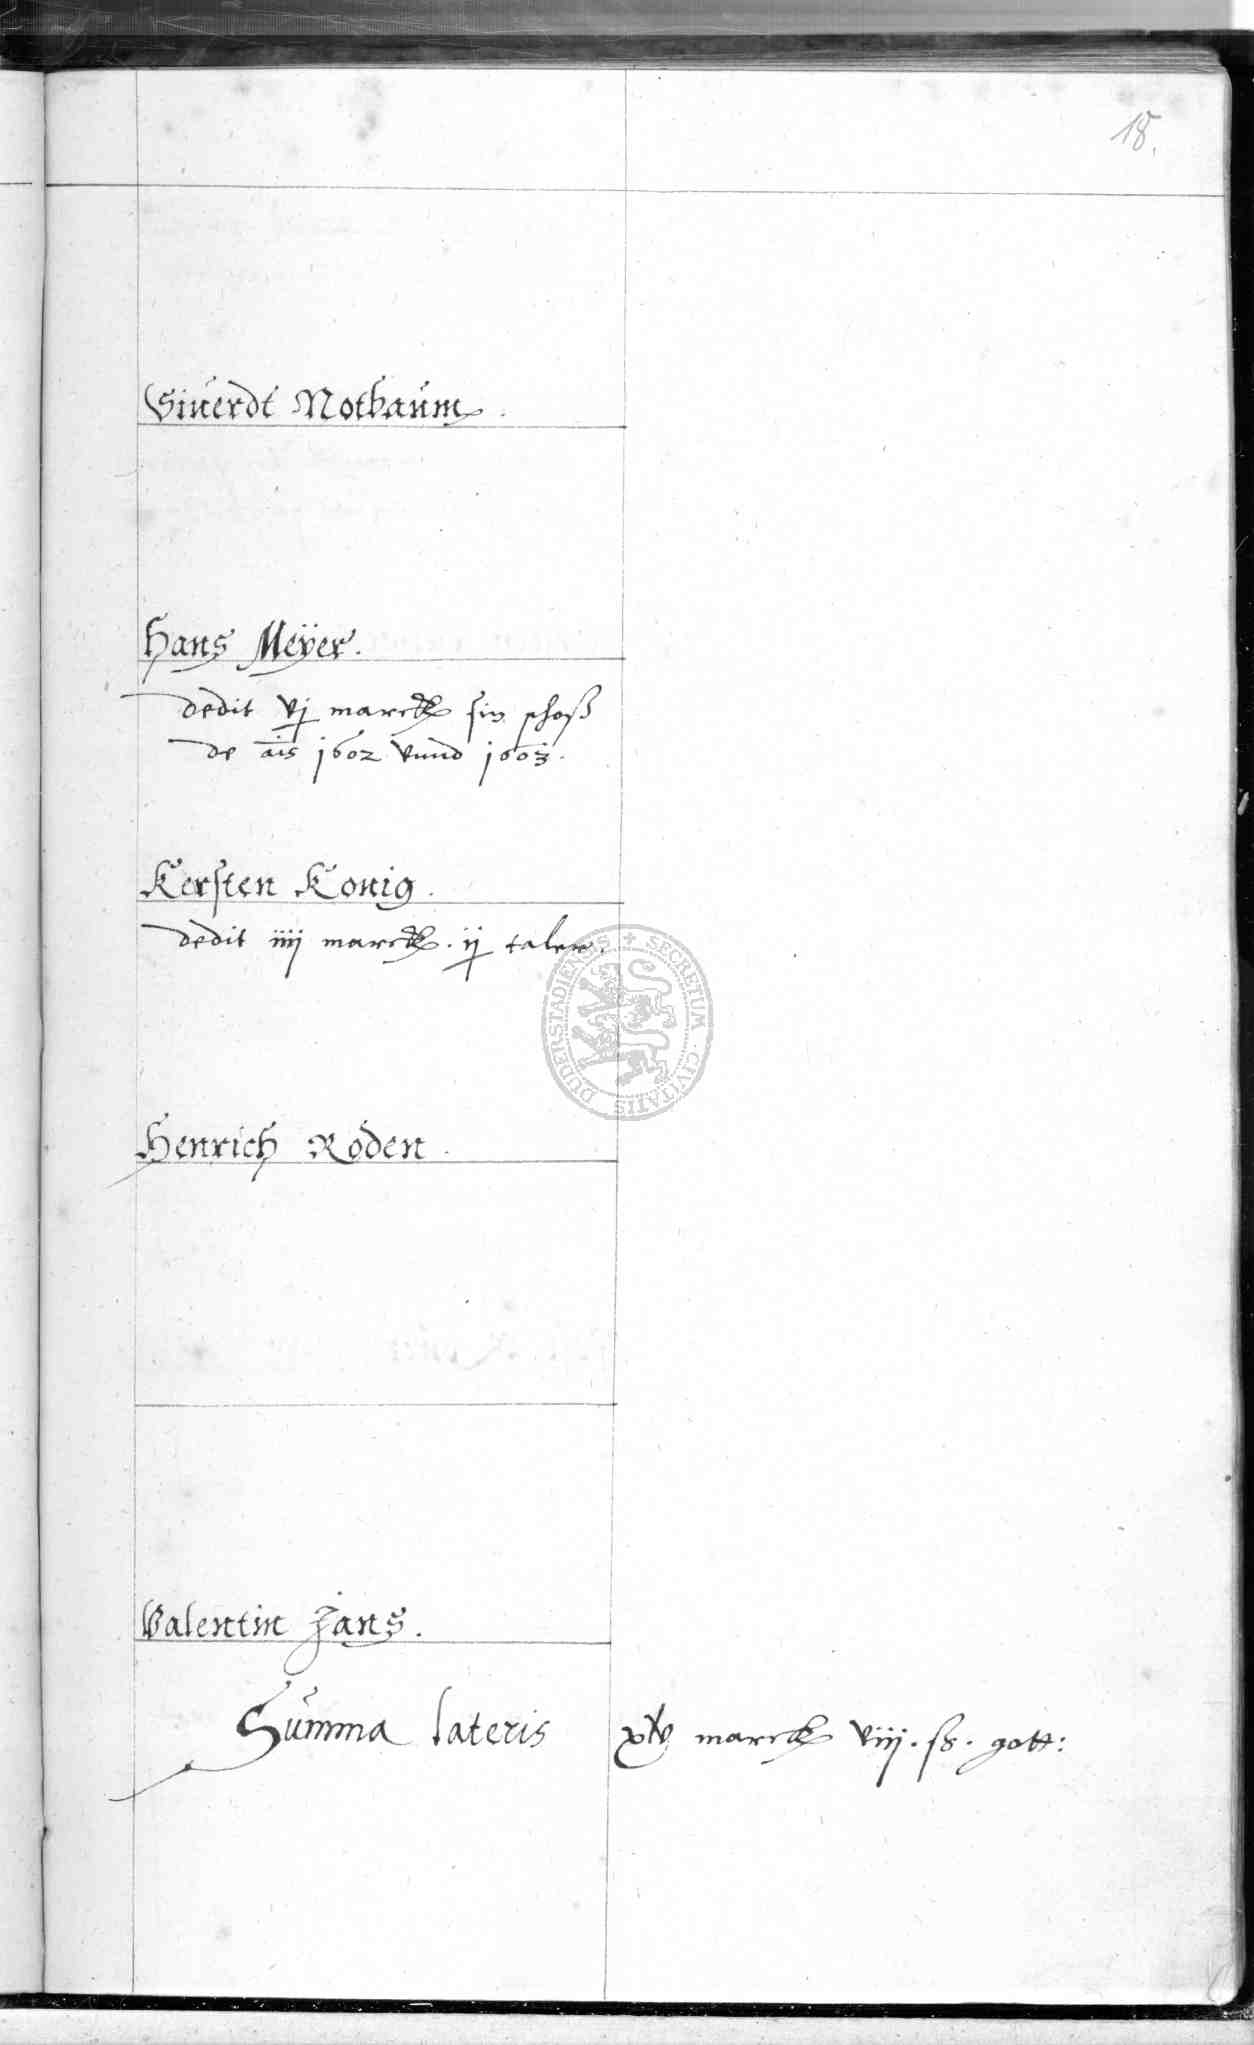 18.
Siuerdt Notbaum.
Hans Meÿer.
dedit vj marck sin schoß
de ais 1602 vnnd 1603.
Kersten Konig.
dedit iiij marck. ij taler.
DUDERSTADIENSIS + SECRETUM CIVITATIS
Henrich Roden.
Valentin Jans.
Summa lateris xlv marck viij. ß. gott: